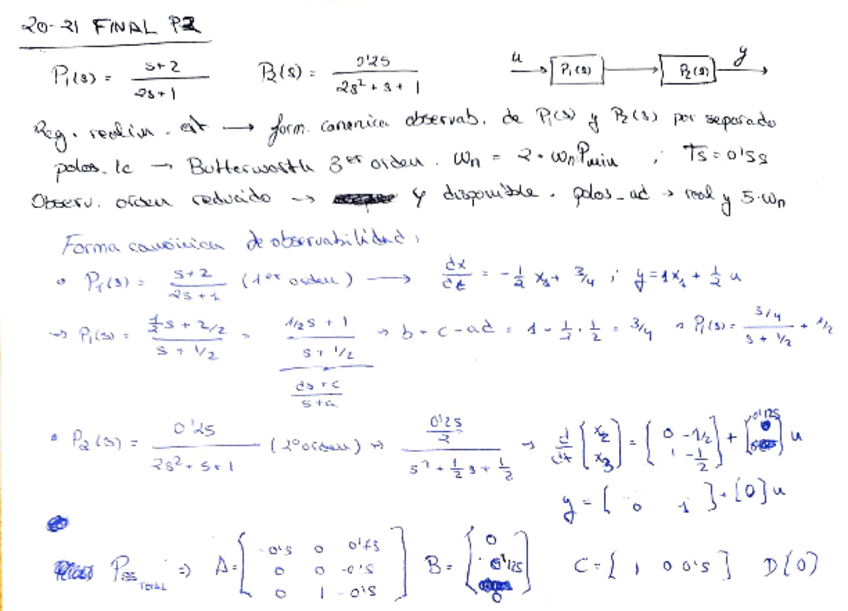 20-21 FINAL P2
P₁(s) = (s+2)/(2s+1)   P₂(s) = 0'25/(2s²+s+1)   u → P₁(s) → P₂(s) → y
Reg. realim. est → form. canonica observab. de P₁(s) y P₂(s) por separado
polos_lc → Butterworth 3er orden. ωn = 2·ωn Pmin ; Ts = 0'5s
Observ. orden reducido → y disponible. polos_ad → real y 5·ωn
Forma canónica de observabilidad:
• P₁(s) = (s+2)/(2s+1) (1er orden) → dx/dt = -1/2 x₁ + 3/4 ; y = 1x₁ + 1/2 u
→ P₁(s) = (1/2 s + 2/2)/(s + 1/2) = (1/2 s + 1)/(s + 1/2) → b = c - ad = 1 - 1/2 · 1/2 = 3/4 → P₁(s) = (3/4)/(s + 1/2) + 1/2
(ds+c)/(s+a)
• P₂(s) = 0'25/(2s²+s+1) (2º orden) → (0'25/2)/(s² + 1/2 s + 1/2) → d/dt [x₂ x₃] = [0 -1/2; 1 -1/2] + [0'125; 0] u
y = [0 1] + [0] u
Pss TOTAL ⇒ A = [-0'5 0 0'75; 0 0 -0'5; 0 1 -0'5] B = [0; 0'125; 0] C = [1 0 0'5] D [0]